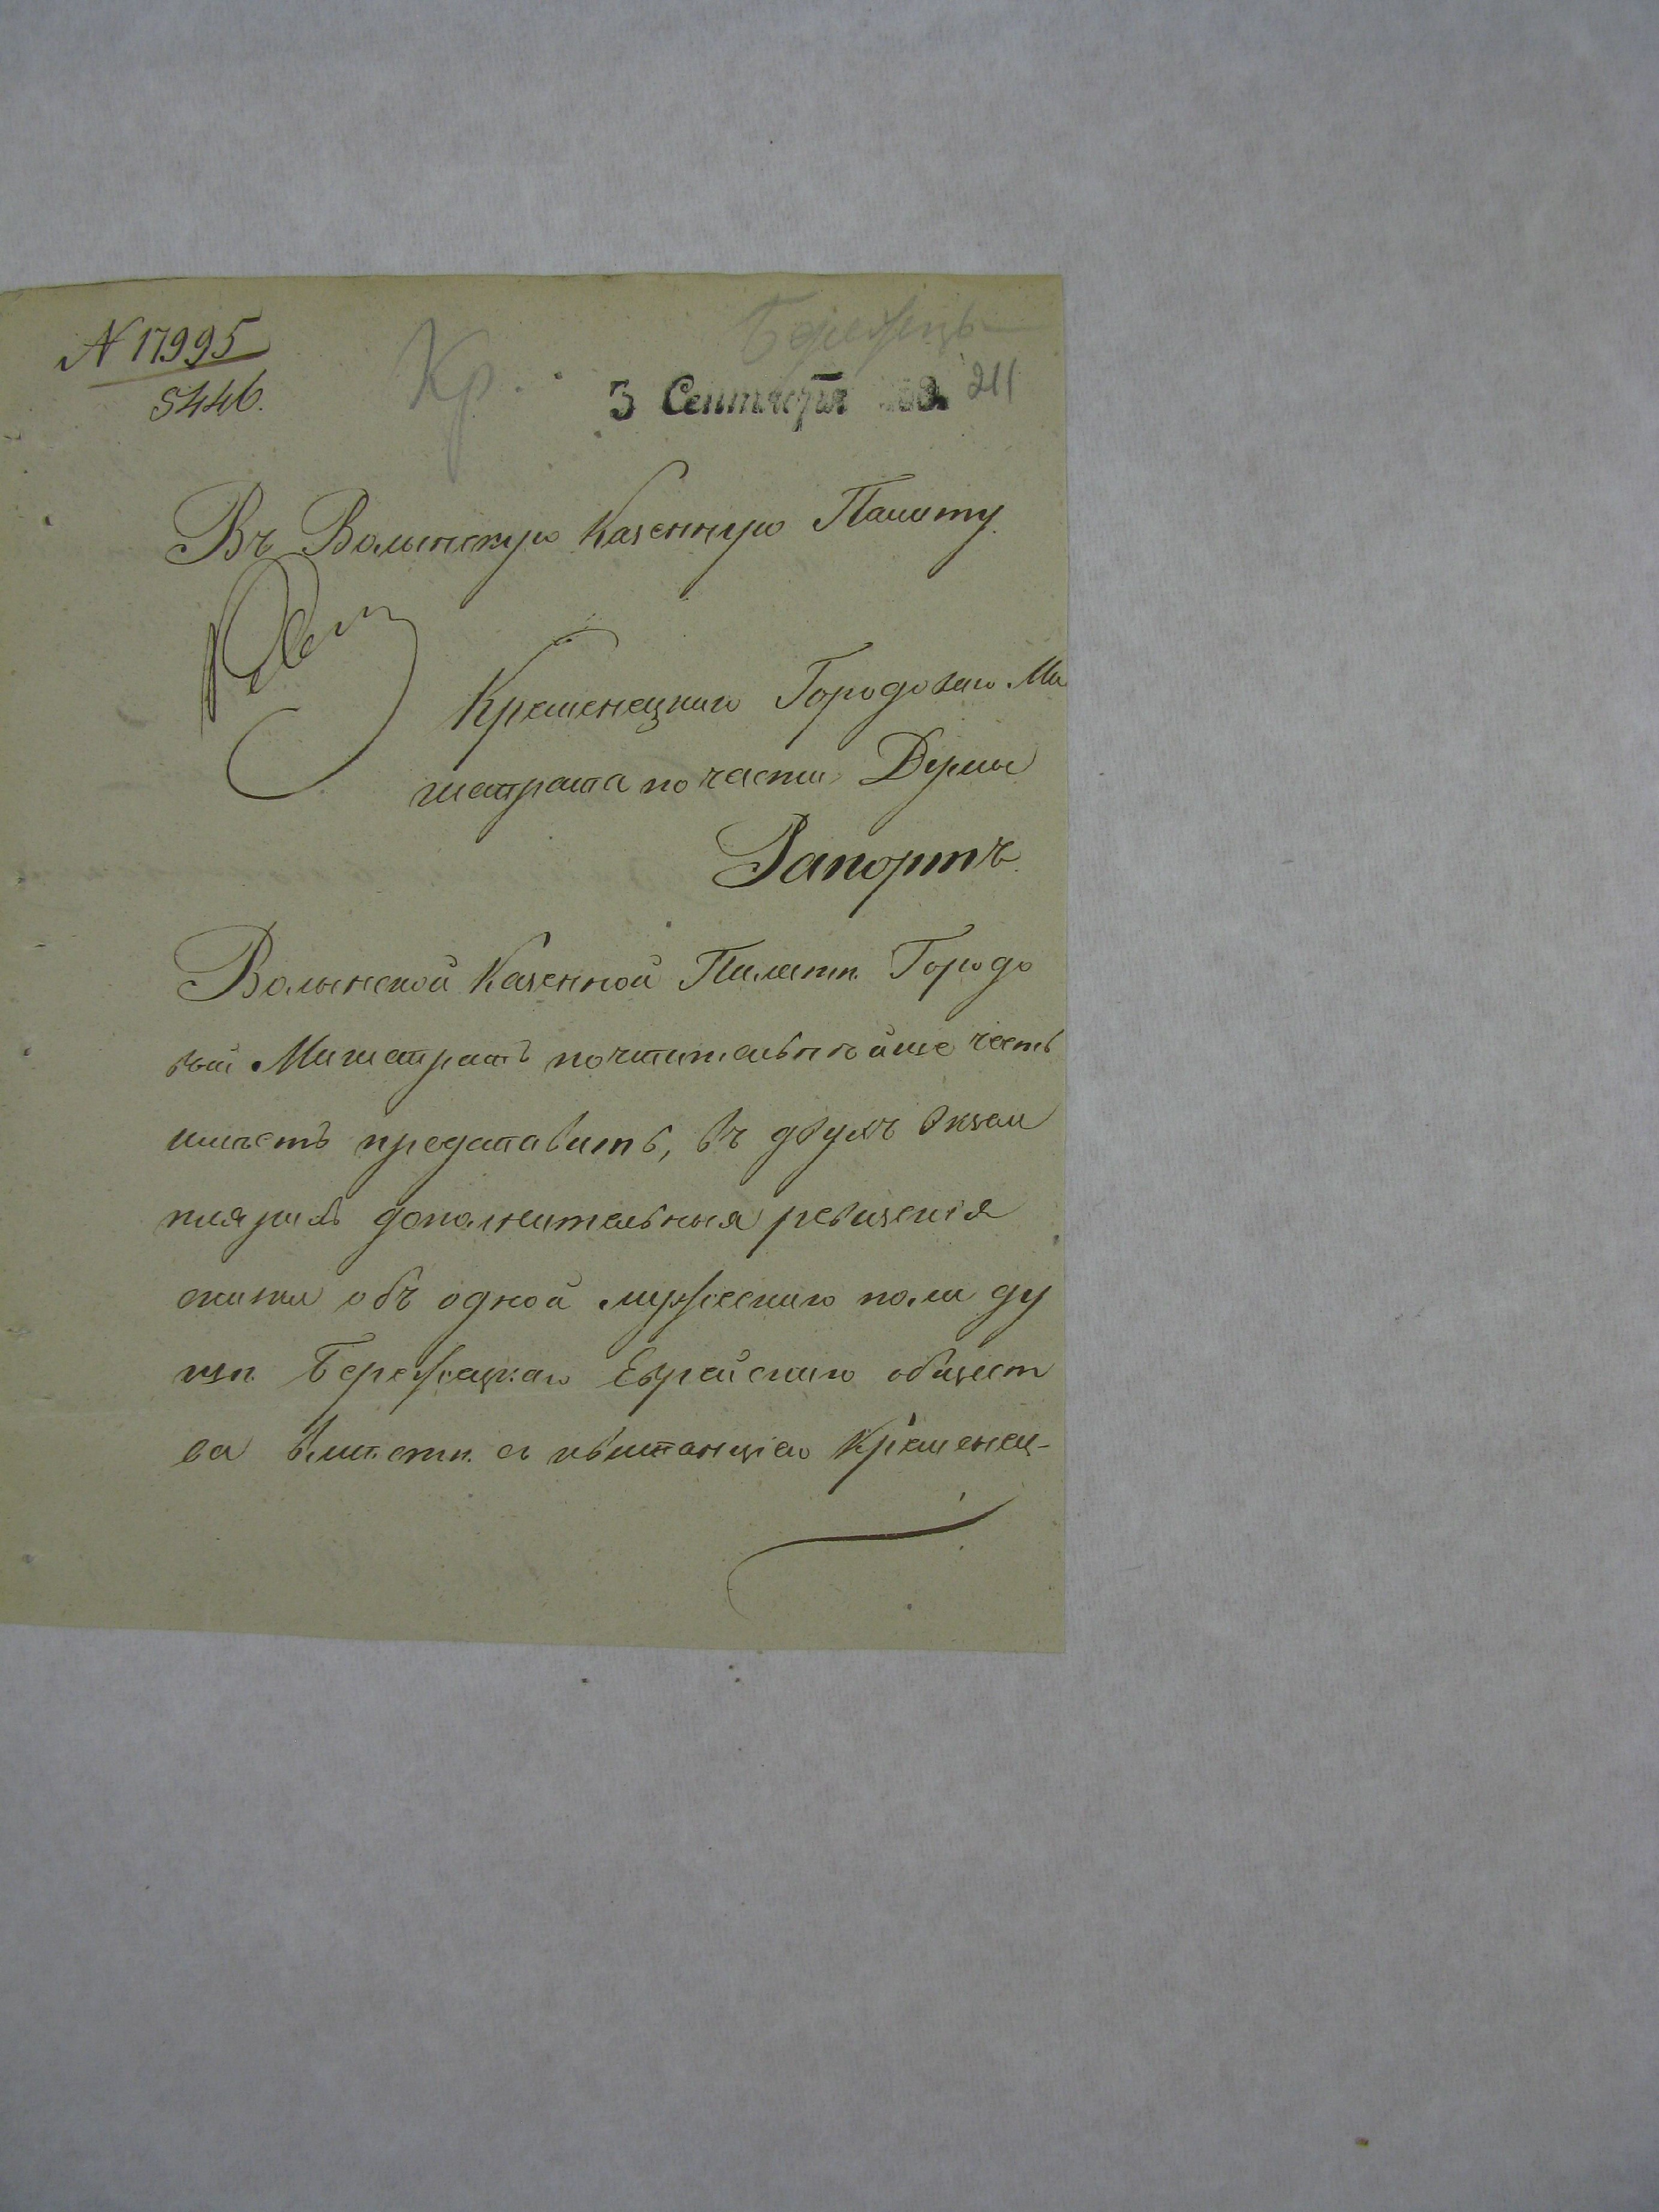 N 17995
5446.
Кр.
Бережецъ
3 Сентября
211
Въ Волынскую Казенную Палату.
Кременецкаго Городоваго Ма
гистрата по части Думы
Рапортъ.
Волынской Казенной Палатѣ Городо
вый Магистратъ почтительнѣйше честь
имѣетъ представить, въ двухъ экзем
плярахъ дополнительныя ревизскія
сказки объ одной мужескаго пола ду
шѣ Бережецкаго Еврейскаго общест
ва вмѣстѣ съ квитанціею Кременец-